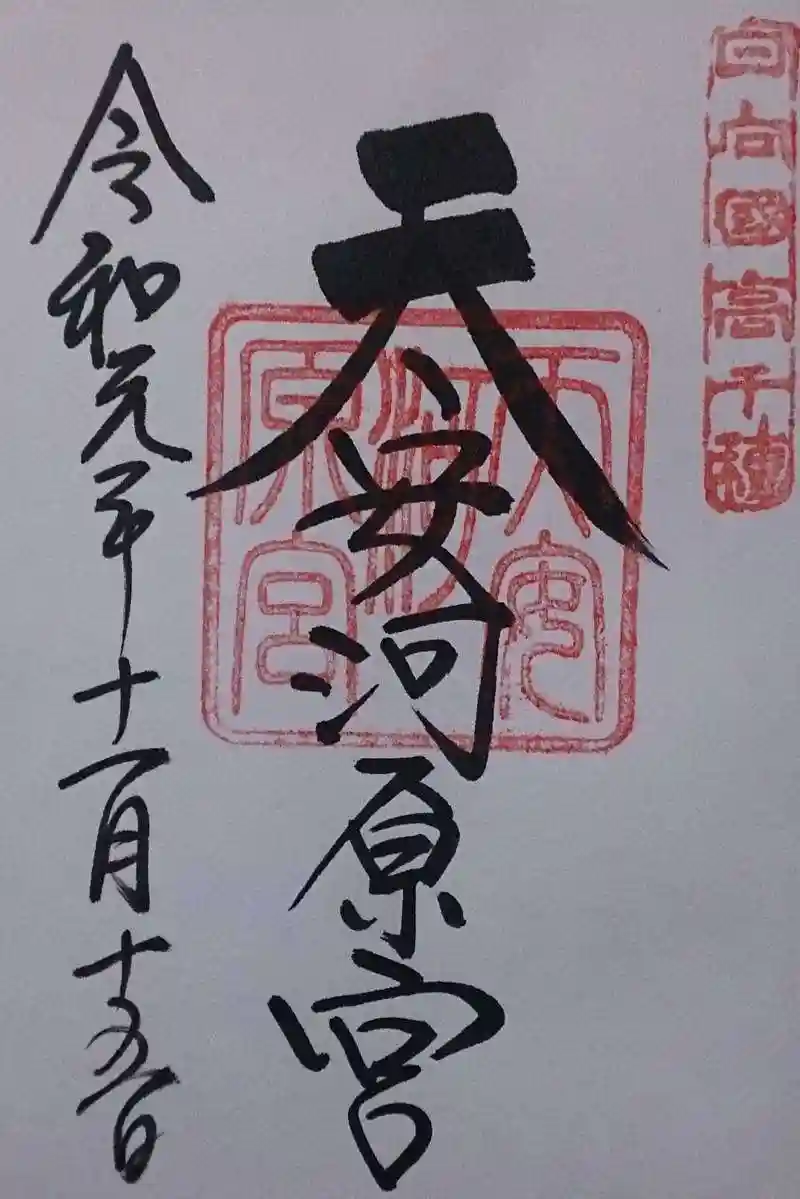 日向國高千穂
天安河原宮
天安河原宮
令和元年十一月十五日